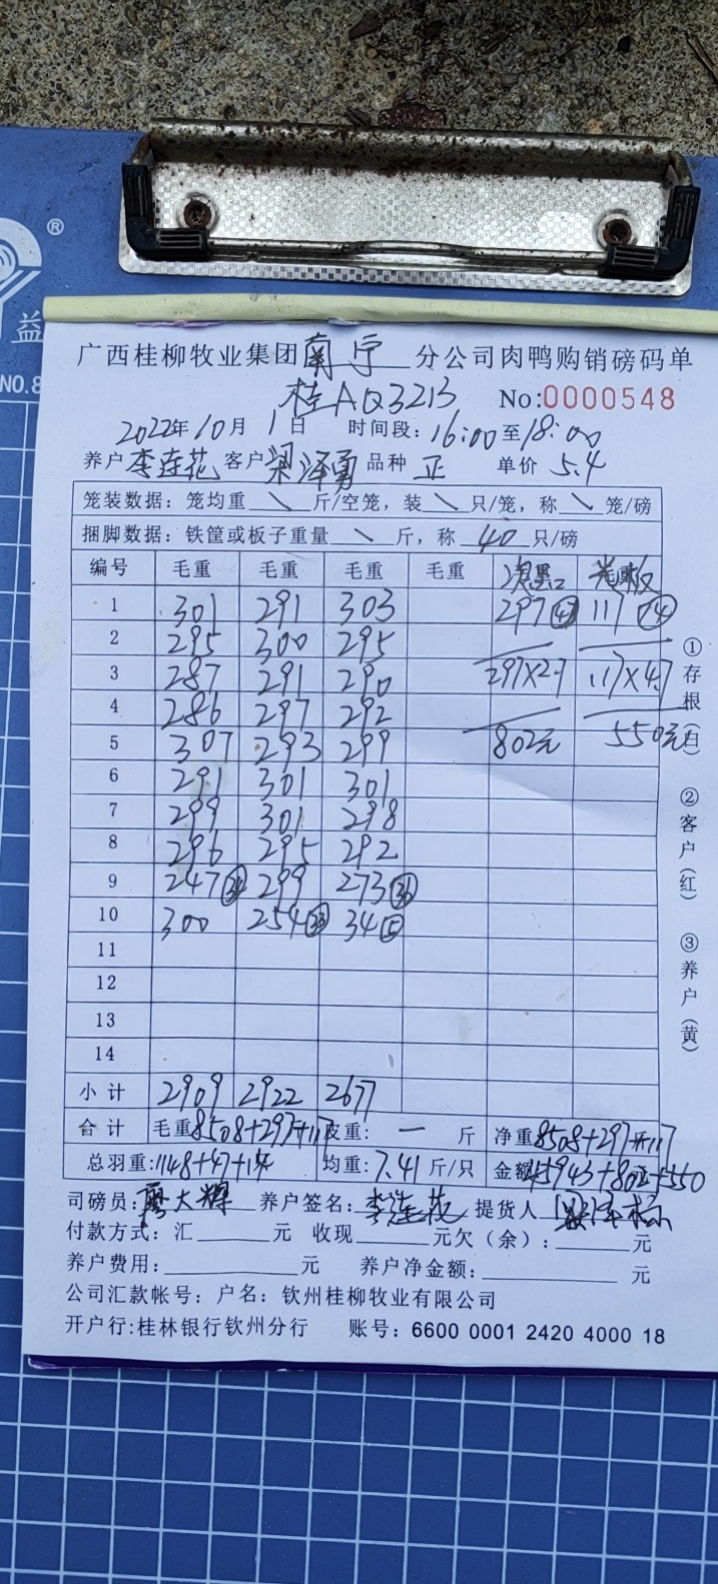 ®
益
NO.8
广西桂柳牧业集团南宁分公司肉鸭购销磅码单
桂AQ3213 No:0000548
2022年10月1日 时间段:16:00至18:00
养户李连花 客户梁泽勇 品种 正 单价 5.4
笼装数据:笼均重 \ 斤/空笼,装 \ 只/笼,称 \ 笼/磅
捆脚数据:铁筐或板子重量 \ 斤,称 40 只/磅
编号 毛重 毛重 毛重 毛重
1 301 291 303 297 117 14
2 295 300 295
3 287 291 290 297×2.7 117×4.7
4 286 297 292
5 307 293 299 802元 550元
6 291 301 301
7 299 301 298
8 296 295 292
9 247 299 273 36
10 300 254 33 34 5
11
12
13
14
小计 2909 2922 2677
合计 毛重8508+297+117 皮重: — 斤 净重8508+297+117
总羽重:1148+47+14 均重:7.41斤/只 金额45943+802+550
司磅员:廖大辉 养户签名:李连花 提货人
付款方式:汇 元 收现 元欠(余): 元
养户费用: 元 养户净金额: 元
公司汇款帐号:户名:钦州桂柳牧业有限公司
开户行:桂林银行钦州分行 账号:6600 0001 2420 4000 18
①存根(白) ②客户(红) ③养户(黄)